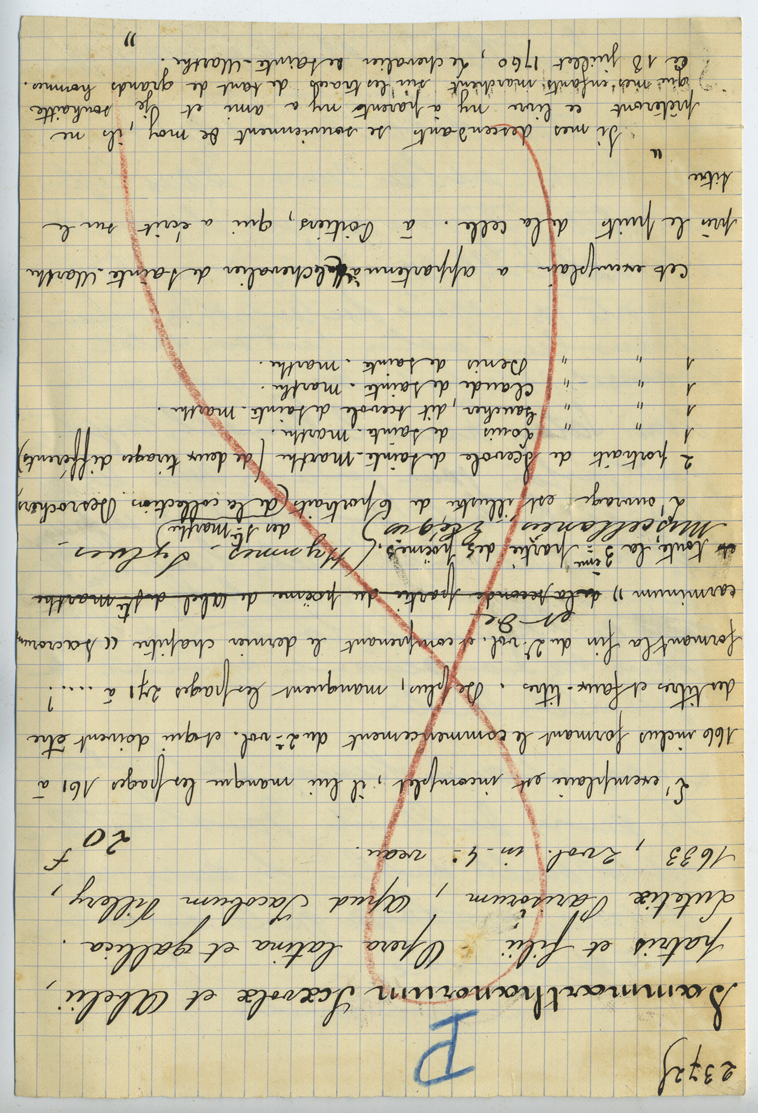 2372
P
Sammarthanorum Scævolæ et Abelii,
patris et filii - Opera latina et gallica.
Lutetiæ Parisiorum, apud Jacobum Villery,
1633, 2 vol. in-4º veau. 20 F
L'exemplaire est incomplet, il lui manque les pages 161 à
166 inclus formant le commencement du 2e vol. et qui doivent être
des titres et faux-titres. De plus, manquent les pages 271 à .....?
formant la fin du 2e vol. et comprenant le dernier chapitre "Sacrorum
et de
carminum" de la seconde partie du poëme de Abel de Ste marthe
toute la 2eme partie des poëmes (Hymmes - Sylves -
Miscellanées Elégies des Ste-marthe)
L'ouvrage est illustré de 6 portraits (de la collection Desrochers,
2 portraits de Scevole de Sainte-Marthe (de deux tirages différents)
1 " " Louis de Sainte-marthe.
1 " " Gaucher, dit Scevole de Sainte-marthe.
1 " " Claude de Sainte-marthe.
1 " " Denis de Sainte-marthe.
Cet exemplaire a appartenu à le chevalier de Sainte-Marthe
près le puits de la celle. à Poitiers, qui a écrit sur le
titre
"
Si mes descendants se souviennent de moy, ils ne
prêteront ce livre ny à parents ny a ami et je souhaitte
que mes enfants marchent sur les traces de tant de grands hommes.
ce 18 juillet 1760, Le chevalier de Sainte-Marthe.
"